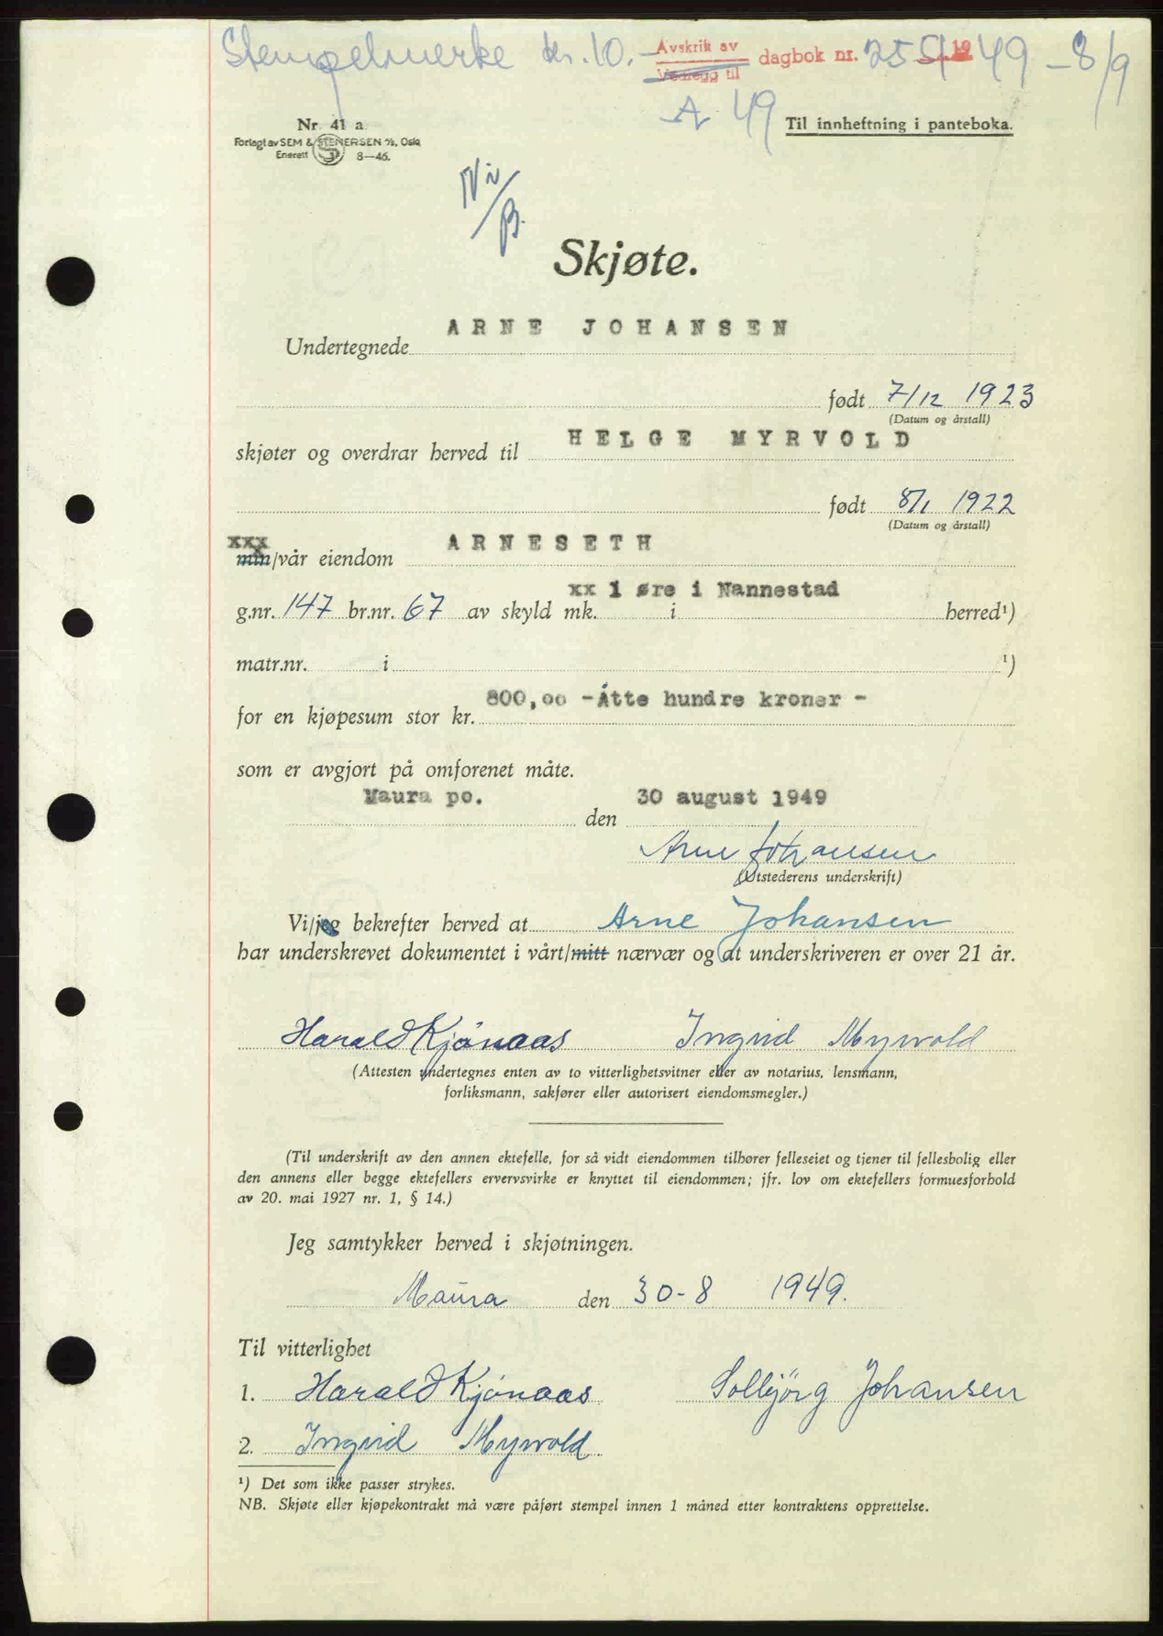 Stempelmerke kr. 10.- Avskrift av dagbok nr. 2551 1949 - 8/9
Vedlegg til
A 49
Nr. 41 a.
Til innheftning i panteboka.
Forlagt av SEM & STENERSEN A/S, Oslo
Enerett 8—46.
Ni/B.
Skjøte.
Undertegnede ARNE JOHANSEN
født 7/12 1923
(Datum og årstall)
skjøter og overdrar herved til HELGE MYRVOLD
født 8/1 1922
(Datum og årstall)
xxx
min/vår eiendom ARNESETH
g.nr. 147 br.nr. 67 av skyld mk. xx 1 øre i Nannestad herred¹)
matr.nr. i ¹)
for en kjøpesum stor kr. 800,oo -Åtte hundre kroner -
som er avgjort på omforenet måte.
Maura po. den 30 august 1949
Arne Johansen
(Utstederens underskrift)
Vi/jeg bekrefter herved at Arne Johansen
har underskrevet dokumentet i vårt/mitt nærvær og at underskriveren er over 21 år.
Harald Kjónaas Ingvid Myrvold
(Attesten undertegnes enten av to vitterlighetsvitner eller av notarius, lensmann,
forliksmann, sakfører eller autorisert eiendomsmegler.)
(Til underskrift av den annen ektefelle, for så vidt eiendommen tilhører felleseiet og tjener til fellesbolig eller
den annens eller begge ektefellers ervervsvirke er knyttet til eiendommen; jfr. lov om ektefellers formuesforhold
av 20. mai 1927 nr. 1, § 14.)
Jeg samtykker herved i skjøtningen.
Maura den 30-8 1949.
Til vitterlighet
1. Harald Kjónaas Solbjörg Johansen
2. Ingvid Myrvold
¹) Det som ikke passer strykes.
NB. Skjøte eller kjøpekontrakt må være påført stempel innen 1 måned etter kontraktens opprettelse.